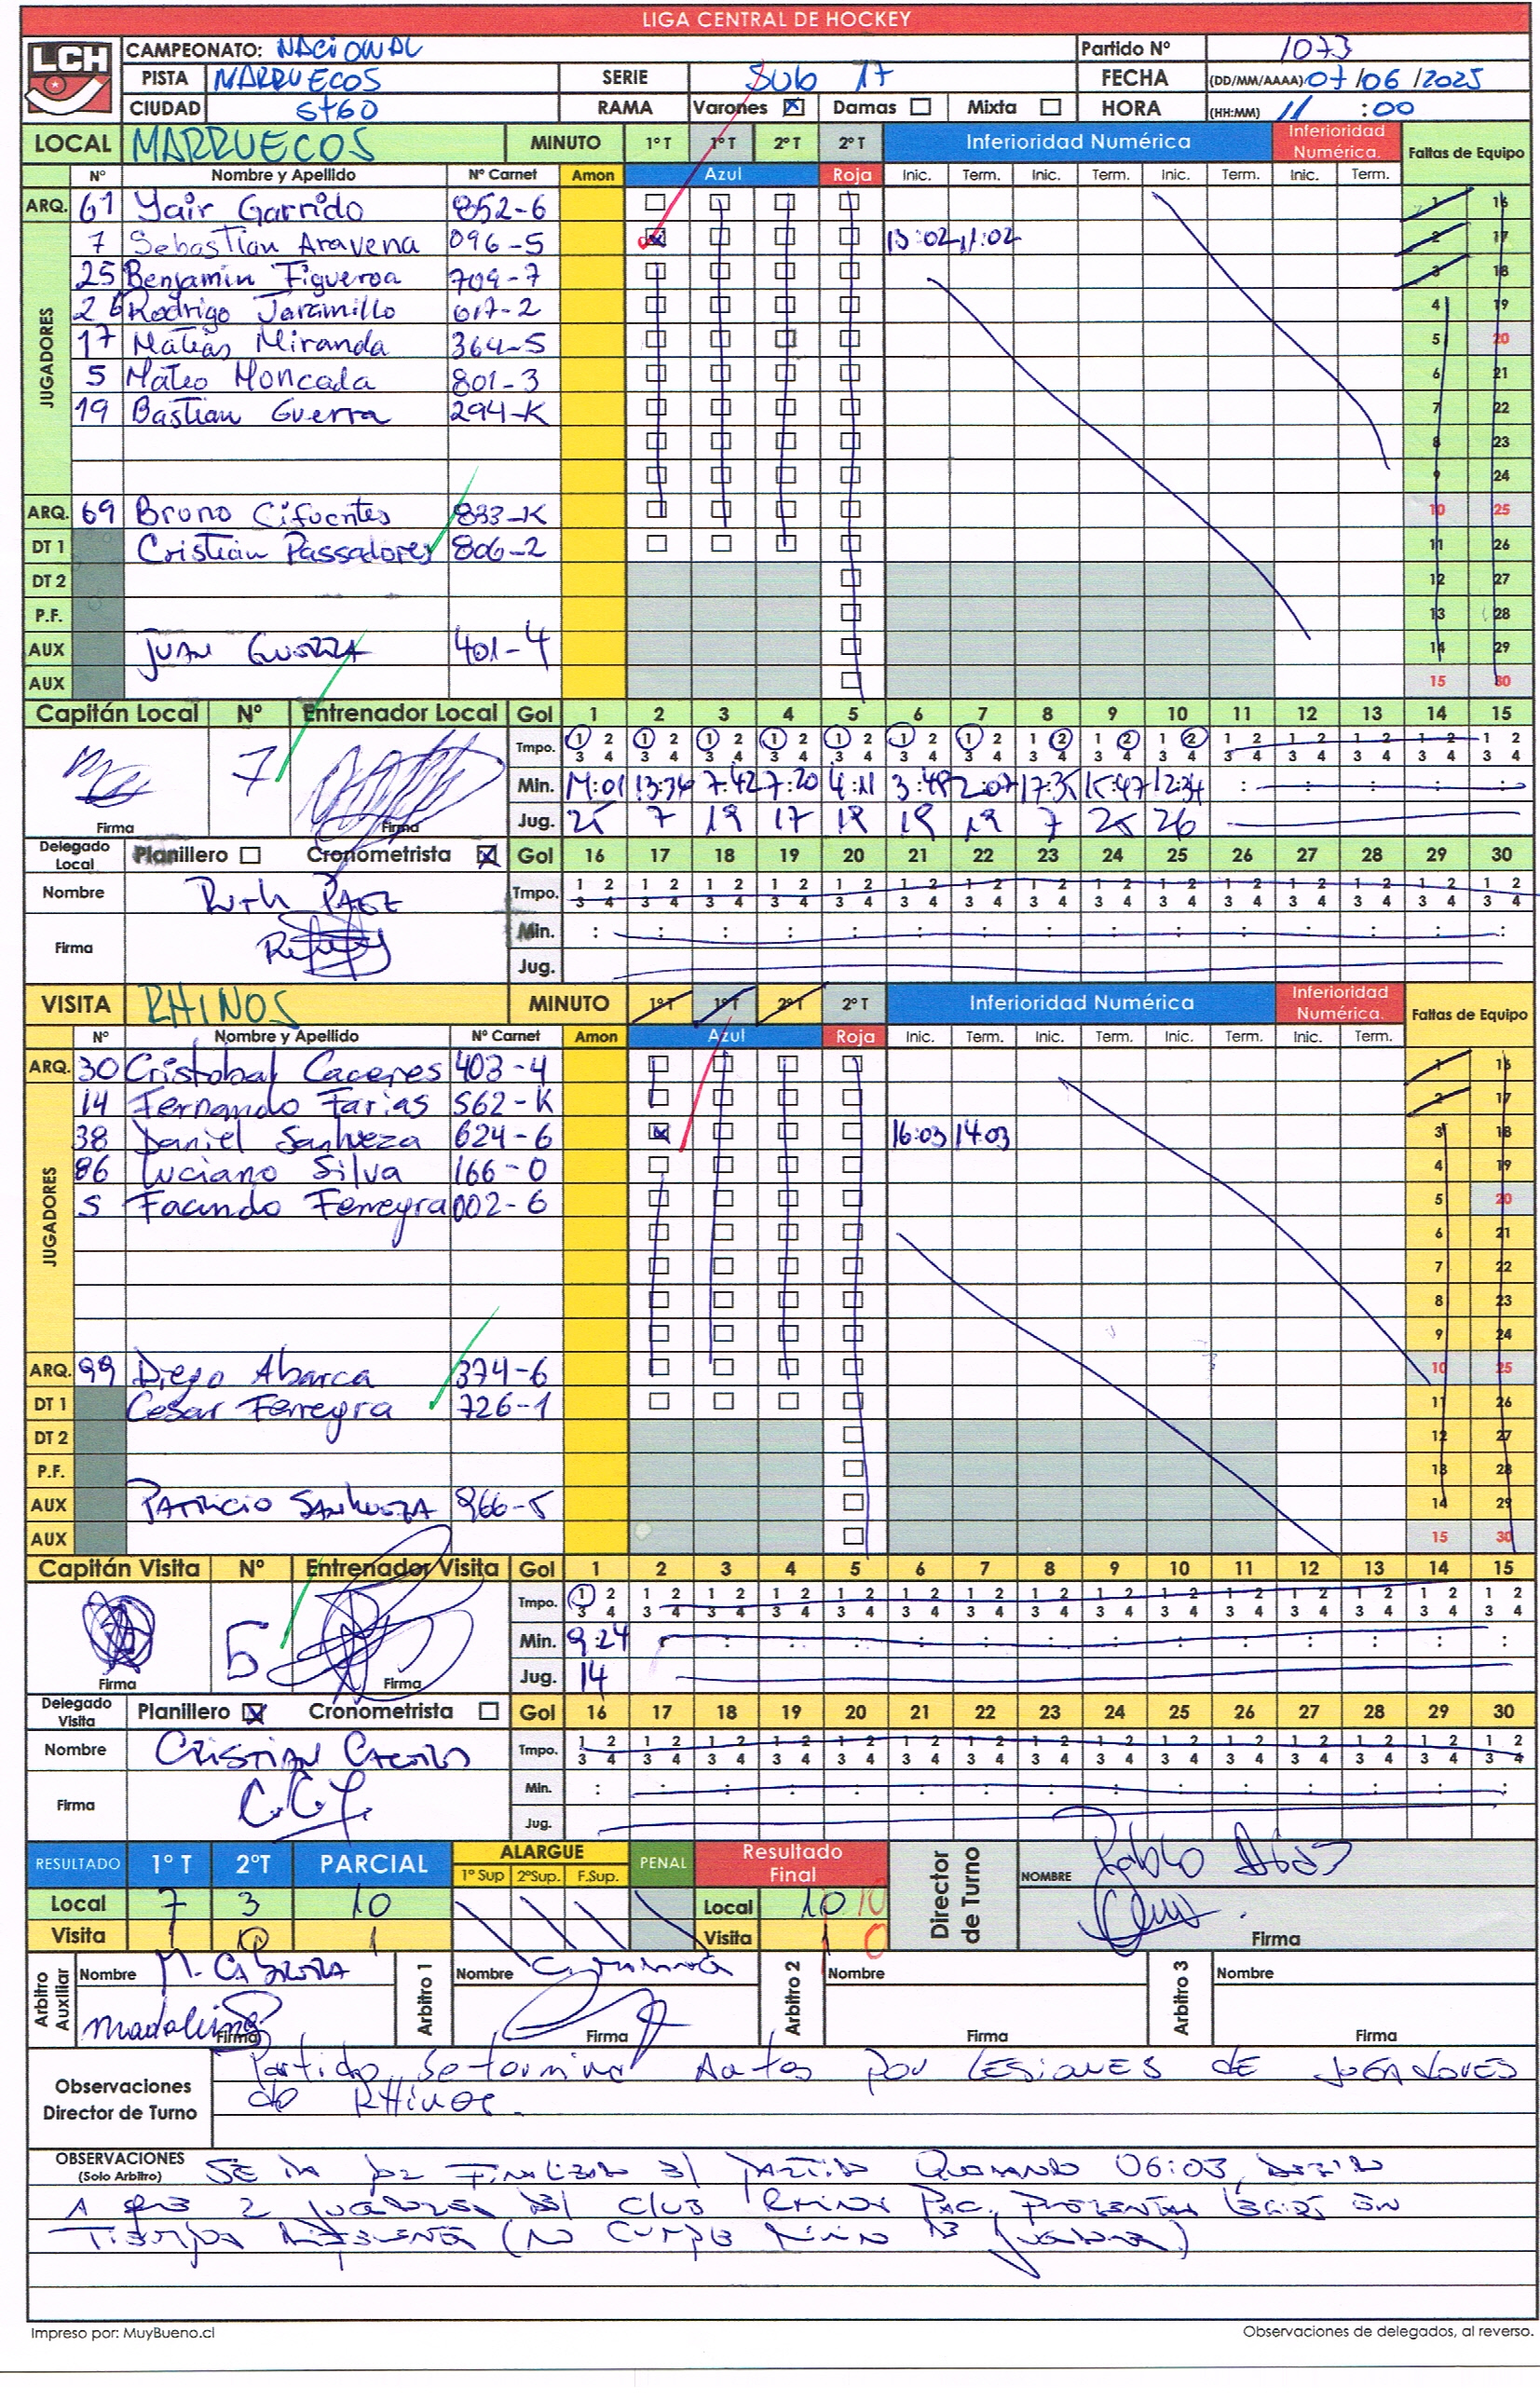 LIGA CENTRAL DE HOCKEY
LCH
CAMPEONATO: NACIONAL Partido Nº 1073
PISTA MARRUECOS SERIE SUB 17 FECHA (DD/MM/AAAA) 07/06/2025
CIUDAD STGO RAMA Varones ☒ Damas ☐ Mixta ☐ HORA (HH:MM) 11:00
LOCAL MARRUECOS MINUTO 1º T 1º T 2º T 2º T Inferioridad Numérica Inferioridad Numérica. Faltas de Equipo
Nº Nombre y Apellido Nº Carnet Amon Azul Roja Inic. Term. Inic. Term. Inic. Term. Inic. Term.
ARQ. 61 Yair Garrido 852-6 1 16
JUGADORES
7 Sebastian Aravena 096-5 13:02 11:02 2 17
25 Benjamin Figueroa 709-7 3 18
26 Rodrigo Jaramillo 617-2 4 19
17 Matias Miranda 364-5 5 20
5 Mateo Moncada 801-3 6 21
19 Bastian Guerra 294-K 7 22
8 23
9 24
ARQ. 69 Bruno Cifuentes 833-K 10 25
DT 1 Cristian Passadores 806-2 11 26
DT 2 12 27
P.F. 13 28
AUX JUAN GUERRA 401-4 14 29
AUX 15 30
Capitán Local Nº Entrenador Local Gol 1 2 3 4 5 6 7 8 9 10 11 12 13 14 15
7 Tmpo. 1 2 3 4 1 2 3 4 1 2 3 4 1 2 3 4 1 2 3 4 1 2 3 4 1 2 3 4 1 2 3 4 1 2 3 4 1 2 3 4 1 2 3 4 1 2 3 4 1 2 3 4 1 2 3 4 1 2 3 4
Min. 13:36 7:42 7:20 4:11 3:48 2:07 17:35 15:47 12:34
Firma Firma Jug. 25 7 19 17 19 19 19 7 25 26
Delegado Local Planillero ☐ Cronometrista ☒ Gol 16 17 18 19 20 21 22 23 24 25 26 27 28 29 30
Nombre Ruth PAEZ Tmpo. 1 2 3 4 1 2 3 4 1 2 3 4 1 2 3 4 1 2 3 4 1 2 3 4 1 2 3 4 1 2 3 4 1 2 3 4 1 2 3 4 1 2 3 4 1 2 3 4 1 2 3 4 1 2 3 4 1 2 3 4
Firma Min. : : : : : : : : : : : : : : :
Jug.
VISITA RHINOS MINUTO 1º T 1º T 2º T 2º T Inferioridad Numérica Inferioridad Numérica. Faltas de Equipo
Nº Nombre y Apellido Nº Carnet Amon Azul Roja Inic. Term. Inic. Term. Inic. Term. Inic. Term.
ARQ. 30 Cristobal Caceres 403-4 1 16
JUGADORES
14 Fernando Farias 562-K 2 17
38 Daniel Sanhueza 624-6 16:03 14:03 3 18
86 Luciano Silva 166-0 4 19
5 Facundo Ferreyra 002-6 5 20
6 21
7 22
8 23
9 24
ARQ. 99 Diego Abarca 374-6 10 25
DT 1 Cesar Ferreyra 726-1 11 26
DT 2 12 27
P.F. 13 28
AUX PATRICIO SANHUEZA 966-5 14 29
AUX 15 30
Capitán Visita Nº Entrenador Visita Gol 1 2 3 4 5 6 7 8 9 10 11 12 13 14 15
5 Tmpo. 1 2 3 4 1 2 3 4 1 2 3 4 1 2 3 4 1 2 3 4 1 2 3 4 1 2 3 4 1 2 3 4 1 2 3 4 1 2 3 4 1 2 3 4 1 2 3 4 1 2 3 4 1 2 3 4 1 2 3 4
Min. 9:24 : : : : : : : : : : : : : :
Firma Firma Jug. 14
Delegado Visita Planillero ☒ Cronometrista ☐ Gol 16 17 18 19 20 21 22 23 24 25 26 27 28 29 30
Nombre CRISTIAN Tmpo. 1 2 3 4 1 2 3 4 1 2 3 4 1 2 3 4 1 2 3 4 1 2 3 4 1 2 3 4 1 2 3 4 1 2 3 4 1 2 3 4 1 2 3 4 1 2 3 4 1 2 3 4 1 2 3 4 1 2 3 4
Firma Min. : : : : : : : : : : : : : : :
Jug.
RESULTADO 1º T 2ºT PARCIAL ALARGUE 1º Sup 2ºSup. F.Sup. PENAL Resultado Final Director de Turno NOMBRE Pablo
Local 7 3 10 Local 10 10
Visita 1 0 1 Visita 1 0 Firma
Arbitro Auxiliar Nombre M. CABRERA Arbitro 1 Nombre Arbitro 2 Nombre Arbitro 3 Nombre
Firma Firma Firma Firma
Observaciones Director de Turno Partido se termina Antes por LESIONES DE JUGADORES
de RHinos.
OBSERVACIONES (Solo Arbitro) SE DA POR FINALIZADO El PARTIDO QUEDANDO 06:03, DEBIDO
A QUE 2 JUGADORES DEL CLUB RHINOS PAC. PRESENTAN EN
TIEMPO (NO CUMPLE MINIMO DE JUGADORES)
Impreso por: MuyBueno.cl Observaciones de delegados, al reverso.